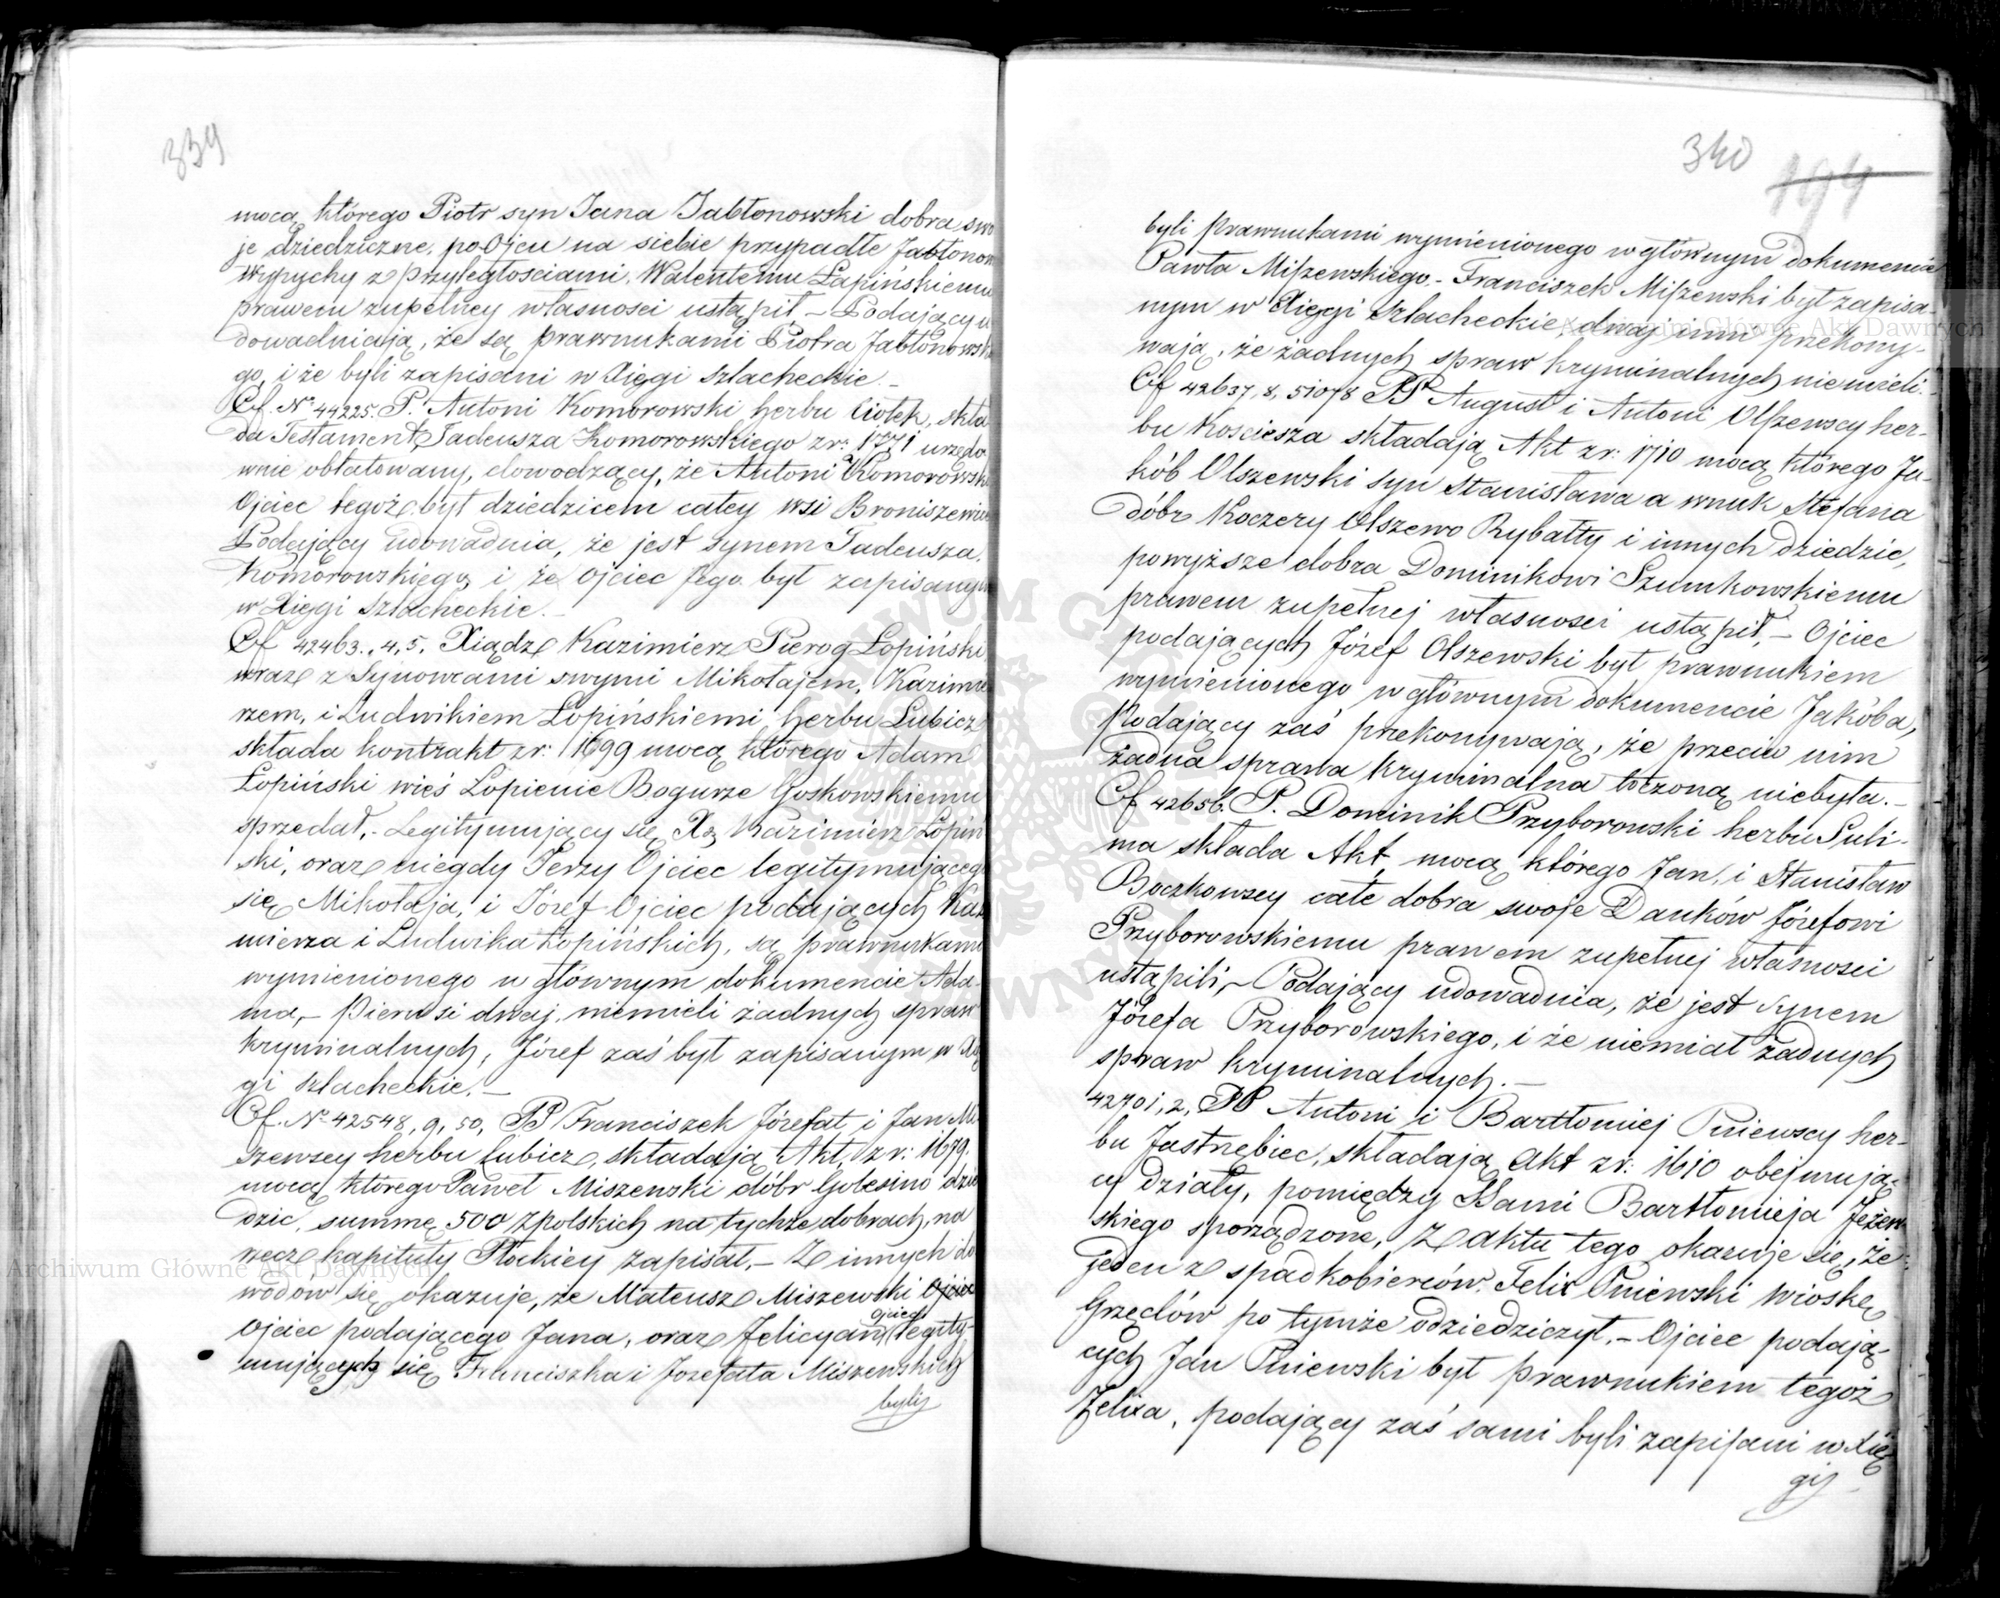 339
mocą którego Piotr syn Jana Jabłonowski dobra swo
je dziedziczne, po Ojcu na siebie przypadłe Jabłonow
Wypychy z przyległosciami, Walentemu Łapińskiemu
prawem zupełney własnosci ustąpił – Podający u
dowadniają, że są prawnukami Piotra Jabłonowski
go, i że byli zapisani w Xięgi szlacheckie. –
Cf. No 44225. P. Antoni Komorowski herbu Ciołek, skła
da Testament Tadeusza Komorowskiego z r: 1771 urzędo
wnie oblatowany, dowodzący, że Antoni Komorowski
Ojciec tegoż był dziedzicem całey wsi Broniszewice
Podający udowadnia, że jest synem Tadeusza
Komorowskiego, i że Ojciec Jego był zapisanym
w Xięgi szlacheckie. –
Cf 42463., 4, 5, Xiądz Kazimierz Pierog Łopiński
wraz z Synowcami swymi Mikołajem, Kazimie
rzem, i Ludwikiem Łopińskiemi herbu Lubicz
składa kontrakt z r: 1699 mocą którego Adam
Łopiński wieś Łopienie Bogurze Goskowskiemu
sprzedał, – Legitymujący się Xdz Kazimierz Łopiń
ski, oraz niegdy Jerzy Ojciec legitymującego
się Mikołaja, i Józef Ojciec podających Kaz
mierza i Ludwika Łopińskich, są prawnukami
wymienionego w głównym dokumencie Ada
ma, – Pierwsi dwaj, niemieli żadnych spraw
kryminalnych, Józef zaś był zapisanym w Xię
gi szlacheckie. –
Cf. No 42548, 9, 50, PP Franciszek Józefat i Jan Mi
szewscy herbu Lubicz, składają Akt, z r: 1679.
mocą którego Paweł Miszewski dóbr Golesino dzie
dzic, summę 500 złpolskich na tychże dobrach, na
rzecz kapituły Płockiey zapisał, – Z innych do
wodow się okazuje, że Mateusz Miszewski Ojciec
Ojciec podającego Jana, oraz Felicyan Ojciec legity-
mujących się Franciszka i Jozefata Miszewskich
byli
340
194
byli Prawnukami wymienionego w głównym dokumencie
Pawła Miszewskiego. – Franciszek Miszewski był zapisa-
nym w Xięgi szlacheckie, dwaj inni przekony-
wają, że żadnych spraw kryminalnych nie mieli. –
Cf 42637, 8, 51078 PP August i Antoni Olszewscy her-
bu Kosciesza składają Akt z r: 1710 mocą którego Ja-
kób Olszewski syn Stanisława a wnuk Stefana
dóbr Koczery Olszewo Rybałty i innych dziedzic,
powyższe dobra Dominikowi Szumkowskiemu
prawem zupełnej własnosci ustąpił, – Ojciec
podających Józef Olszewski był prawnukiem
wymienionego w głównym dokumencie Jakóba,
Podający zaś przekonywają, że przeciw nim
żadna sprawa kryminalna toczoną niebyła. –
Cf 42656. P. Dominik Przyborowski herbu Suli-
ma składa Akt, mocą którego Jan, i Stanisław
Boczkowscy całe dobra swoje Danków Józefowi
Przyborowskiemu prawem zupełnej własnosci
ustąpili, – Podający udowadnia, że jest synem
Józefa Przyborowskiego, i że niemiał żadnych
spraw kryminalnych. –
42701, 2, PP Antoni i Bartłomiej Pniewscy her-
bu Jastrzębiec, składają Akt z r: 1610 obejmują-
cy działy, pomiędzy SSami Bartłomieja Jeżew
skiego sporządzone, Z aktu tego okazuje się, że
jeden z spadkobierców, Felix Pniewski wioskę
Grzęclów po tymże odziedziczył. – Ojciec podają-
cych Jan Pniewski był prawnukiem tegoż
Felixa, podający zaś sami byli zapisani w Xię
gi
Archiwum Główne Akt Dawnych
Archiwum Główne Akt Dawnych
ARCHIWUM GŁÓWNE AKT DAWNYCH